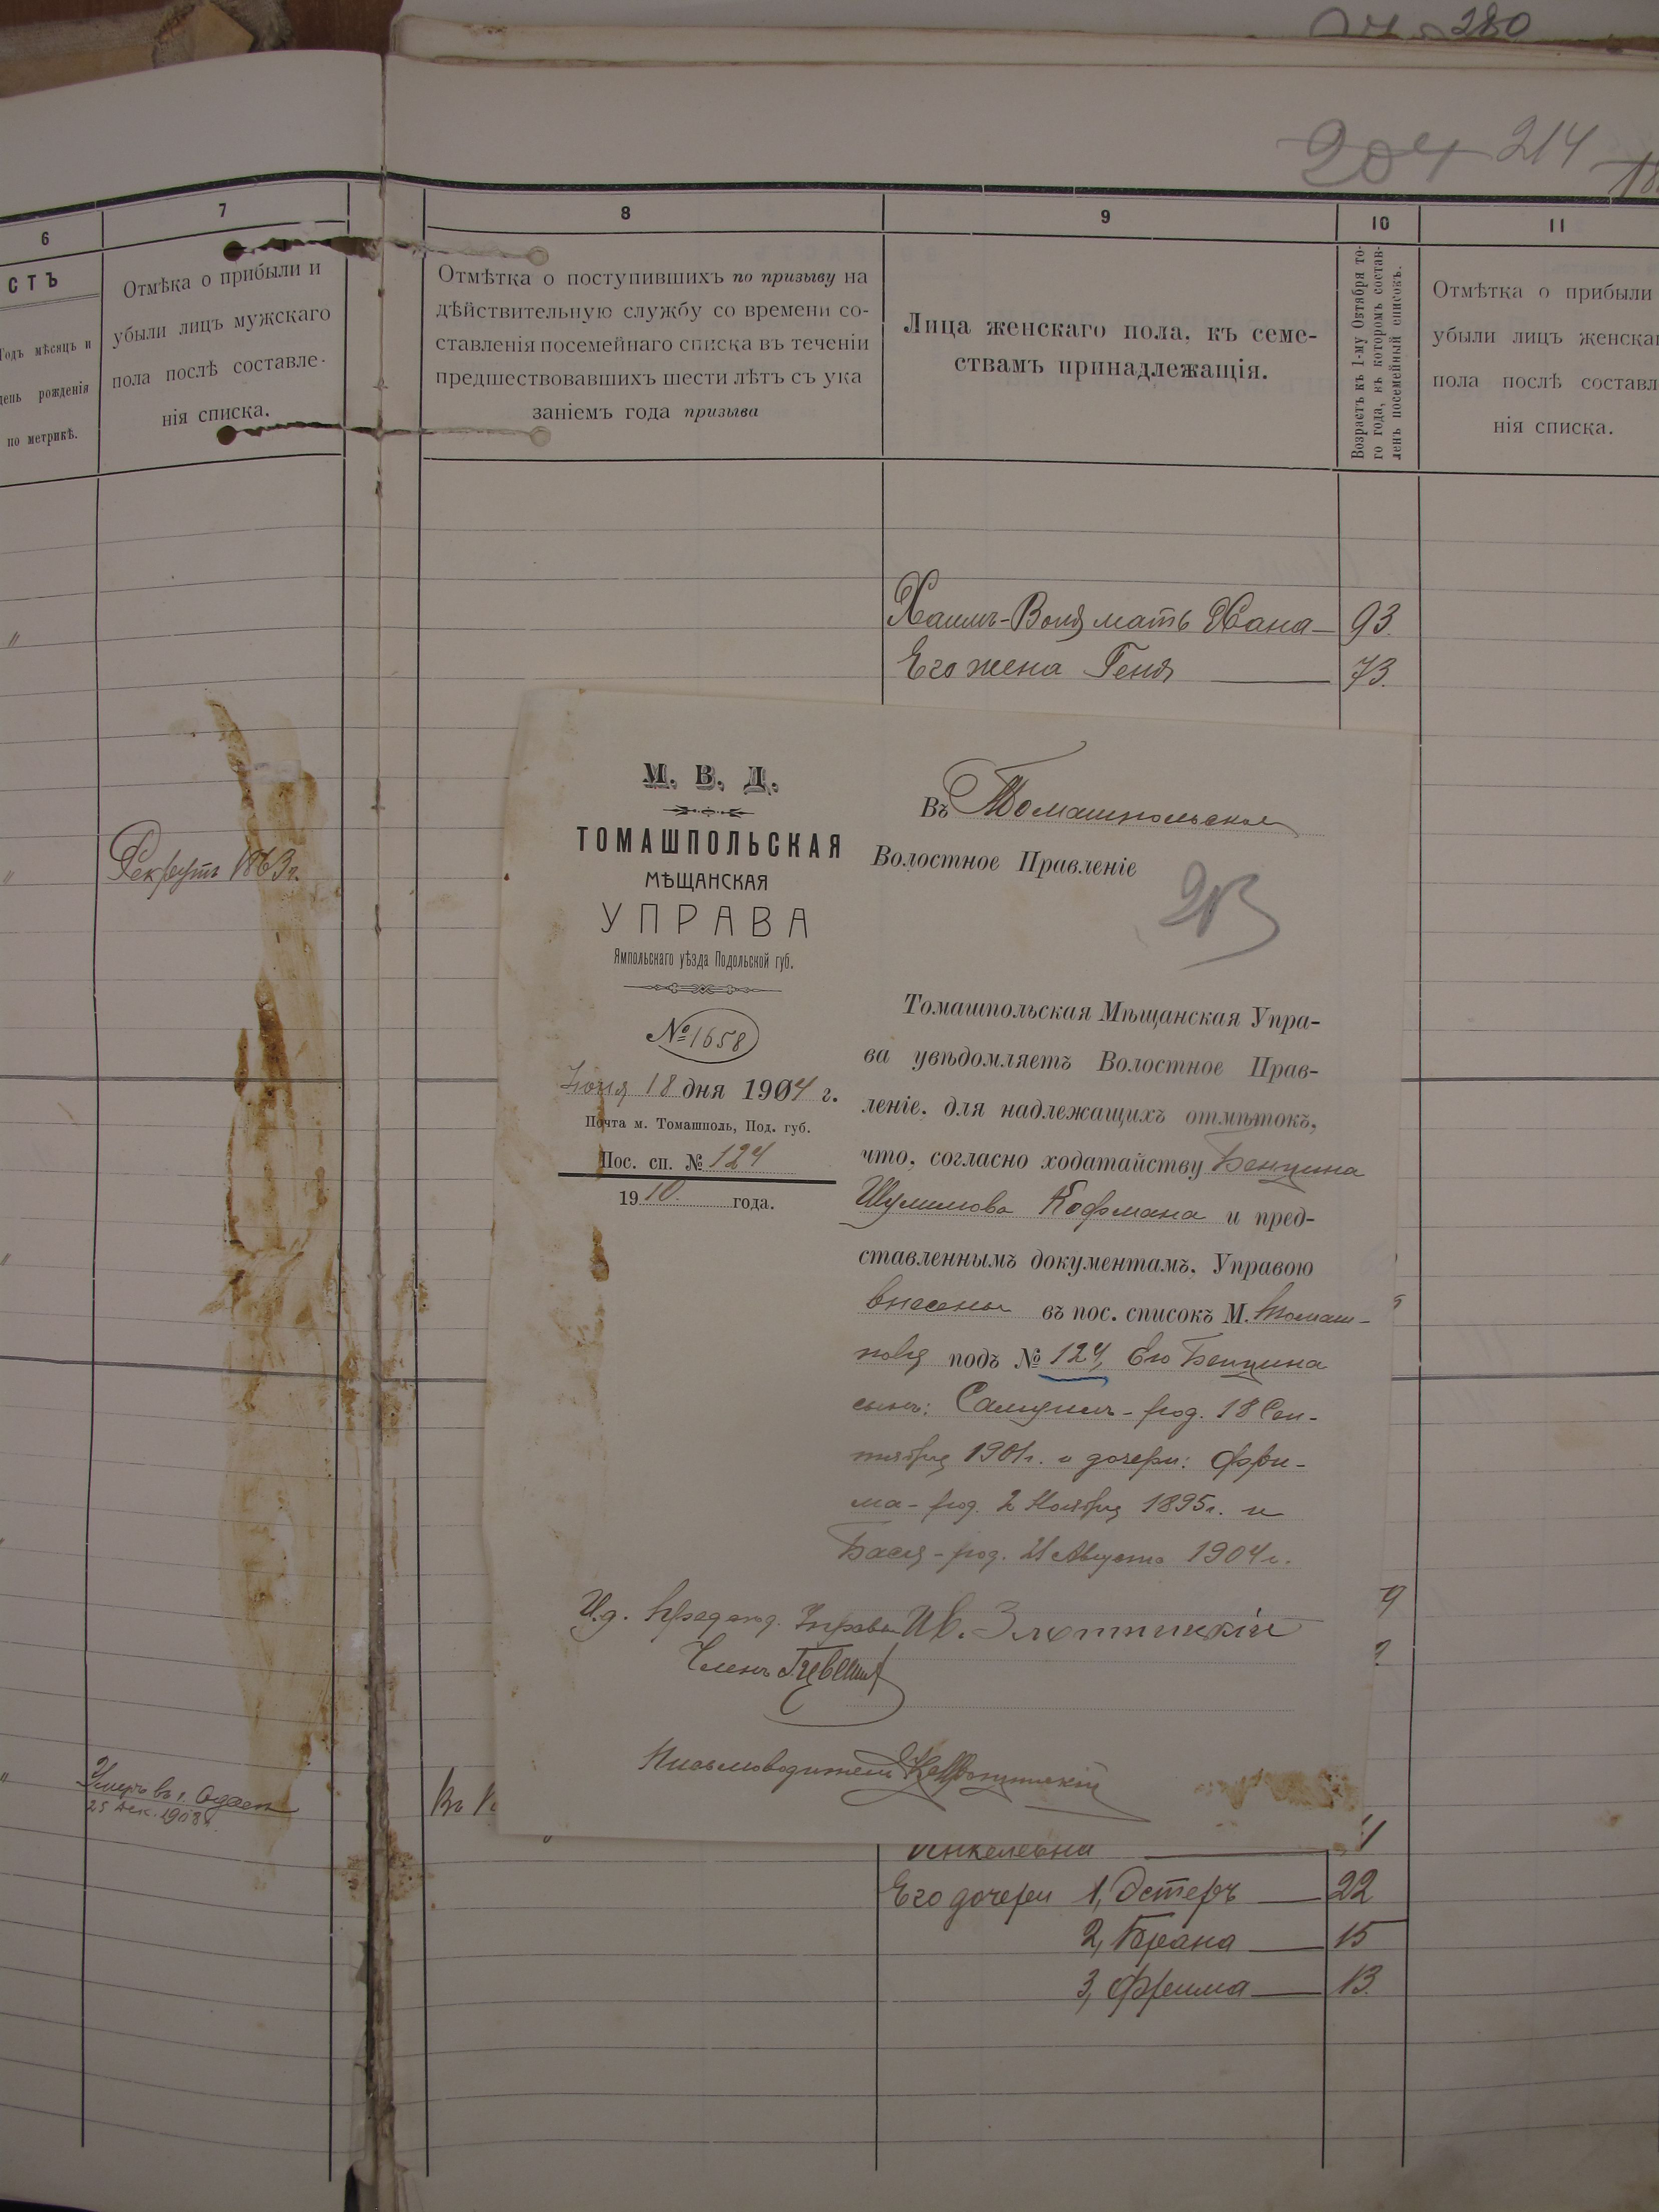 280
204 214
6
7
8
9
10
11
СТЬ
Годъ мѣсяцъ и
день рожденія
по метрикѣ.
Отмѣка о прибыли и
убыли лицъ мужскаго
пола послѣ составле-
нія списка.
Отмѣтка о поступившихъ по призыву на
дѣйствительную службу со времени со-
ставленія посемейнаго списка въ теченіи
предшествовавшихъ шести лѣтъ съ ука
заніемъ года призыва
Лица женскаго пола, къ семе-
ствамъ принадлежащія.
Возрастъ къ 1-му Октября то-
го года, въ которомъ состав-
ленъ посемейный списокъ.
Отмѣтка о прибыли
убыли лицъ женска
пола послѣ составл
нія списка.
мать Хана 93.
Его жена Геня 73.
Рекрутъ 1863 г.
М. В. Д.
ТОМАШПОЛЬСКАЯ
МѢЩАНСКАЯ
УПРАВА
Ямпольскаго уѣзда Подольской губ.
№ 1658
Іюня 18 дня 1904 г.
Почта м. Томашполь, Под. губ.
Пос. сп. № 124
1910. года.
Въ Томашпольское
Волостное Правленіе
Томашпольская Мѣщанская Упра-
ва увѣдомляетъ Волостное Прав-
леніе, для надлежащихъ отмѣтокъ,
что, согласно ходатайству Бенциона
Шулимова Кофмана и пред-
ставленнымъ документамъ, Управою
внесены въ пос. списокъ М. Томаш-
поля подъ № 124, его Бенциона
сынъ: род. 18 Сен-
тября 1901 г. и дочери: Фри-
ма - род. 2 Ноября 1895 г. и
Бася - род. 21 Августа 1904 г.
И.д. Предсѣд. Управы Ив.
Членъ
Письмоводитель
Умеръ въ г. Одессѣ
25 Дек. 1908 г.
Въ
Янкелевна
Его дочери 1, Эстеръ 22
2, Брана 15
3, Фрейма 13.